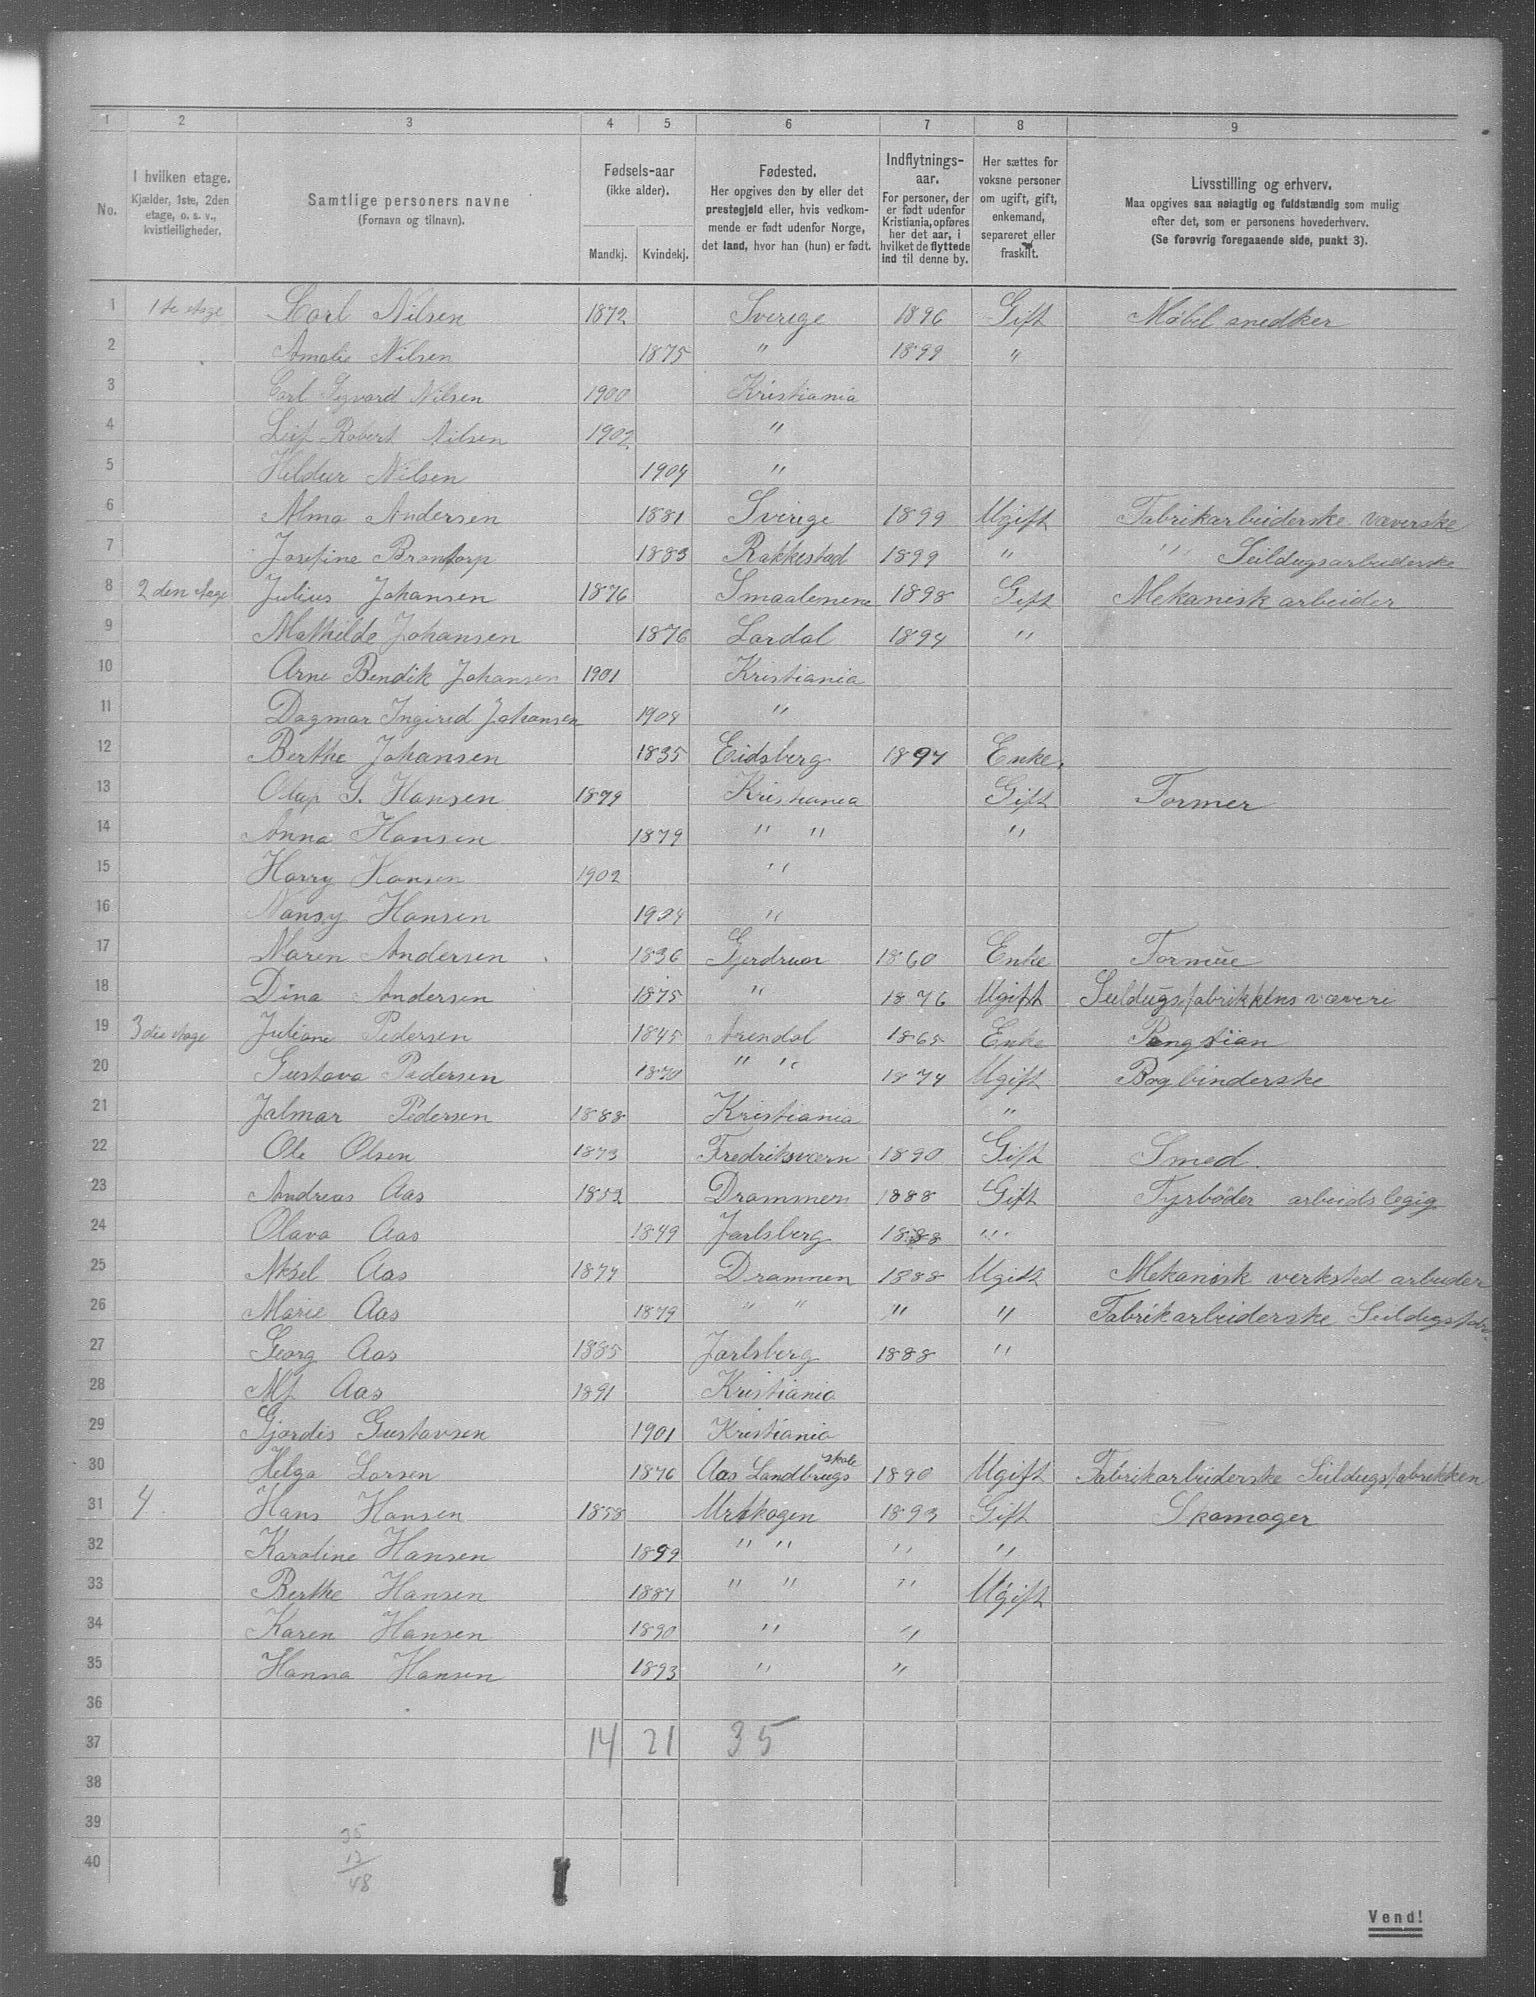 1 2 3 4 5 6 7 8 9
No.
I hvilken etage.
Kjælder, 1ste, 2den
etage, o. s. v.,
kvistleiligheder.
Samtlige personers navne
(Fornavn og tilnavn).
Fødsels-aar
(ikke alder).
Mandkj. Kvindekj.
Fødested.
Her opgives den by eller det
prestegjeld eller, hvis vedkom-
mende er født udenfor Norge,
det land, hvor han (hun) er født.
Indflytnings-
aar.
For personer, der
er født udenfor
Kristiania, opføres
her det aar, i
hvilket de flyttede
ind til denne by.
Her sættes for
voksne personer
om ugift, gift,
enkemand,
separeret eller
fraskilt.
Livsstilling og erhverv.
Maa opgives saa nøiagtig og fuldstændig som mulig
efter det, som er personens hovederhverv.
(Se forøvrig foregaaende side, punkt 3).
1 1ste etage Carl Nilsen 1872 Sverige 1896 Gift Møbel snedker
2 Amalie Nilsen 1875 " 1899 "
3 Carl Sigvard Nilsen 1900 Kristiania
4 Leif Robert Nilsen 1902 "
5 Hildur Nilsen 1904 "
6 Alma Andersen 1881 Sverige 1899 Ugift Fabrikarbeiderske væverske
7 Josefine Brantorp 1883 Rakkestad 1899 " " Seildugsarbeiderske
8 2den etage Julius Johansen 1876 Smaalenene 1898 Gift Mekanisk arbeider
9 Mathilde Johansen 1876 Lardal 1894 "
10 Arne Bendik Johansen 1901 Kristiania
11 Dagmar Ingirid Johansen 1904 "
12 Berthe Johansen 1835 Eidsberg 1897 Enke.
13 Olaf G. Hansen 1879 Kristiania Gift Former
14 Anna Hansen 1879 " " "
15 Harry Hansen 1902 "
16 Nansy Hansen 1904 "
17 Maren Andersen 1836 Gjerdrum 1860 Enke Formue
18 Dina Andersen 1875 " 1876 Ugift Seildugsfabrikkens væveri
19 3die etage Juliane Pedersen 1845 Arendal 1865 Enke Pangsian
20 Gustava Pedersen 1870 " " 1874 Ugift Bogbinderske
21 Jalmar Pedersen 1888 Kristiania "
22 Ole Olsen 1873 Fredriksværn 1890 Gift Smed.
23 Andreas Aas 1852 Drammen 1888 Gift Fyrbøder arbeidsløgig
24 Olava Aas 1849 Jarlsberg 1888 "
25 Aksel Aas 1874 Drammen 1888 Ugift Mekanisk verksted arbeider
26 Marie Aas 1879 " " " " Fabrikarbeiderske Seildugsfabr.
27 Georg Aas 1885 Jarlsberg 1888 "
28 Alf Aas 1891 Kristiania
29 Gjordis Gustavsen 1901 Kristiania
30 Helga Larsen 1876 Aas Landbrugs skole 1890 Ugift Fabrikarbeiderske Seildugsfabrikken
31 4. Hans Hansen 1858 Urskogen 1893 Gift Skomager
32 Karoline Hansen 1859 " " " "
33 Berthe Hansen 1887 " " " Ugift
34 Karen Hansen 1890 " "
35 Hanna Hansen 1893 " "
36
37 14 21 35
38
39
35
40
13
48
Vend!